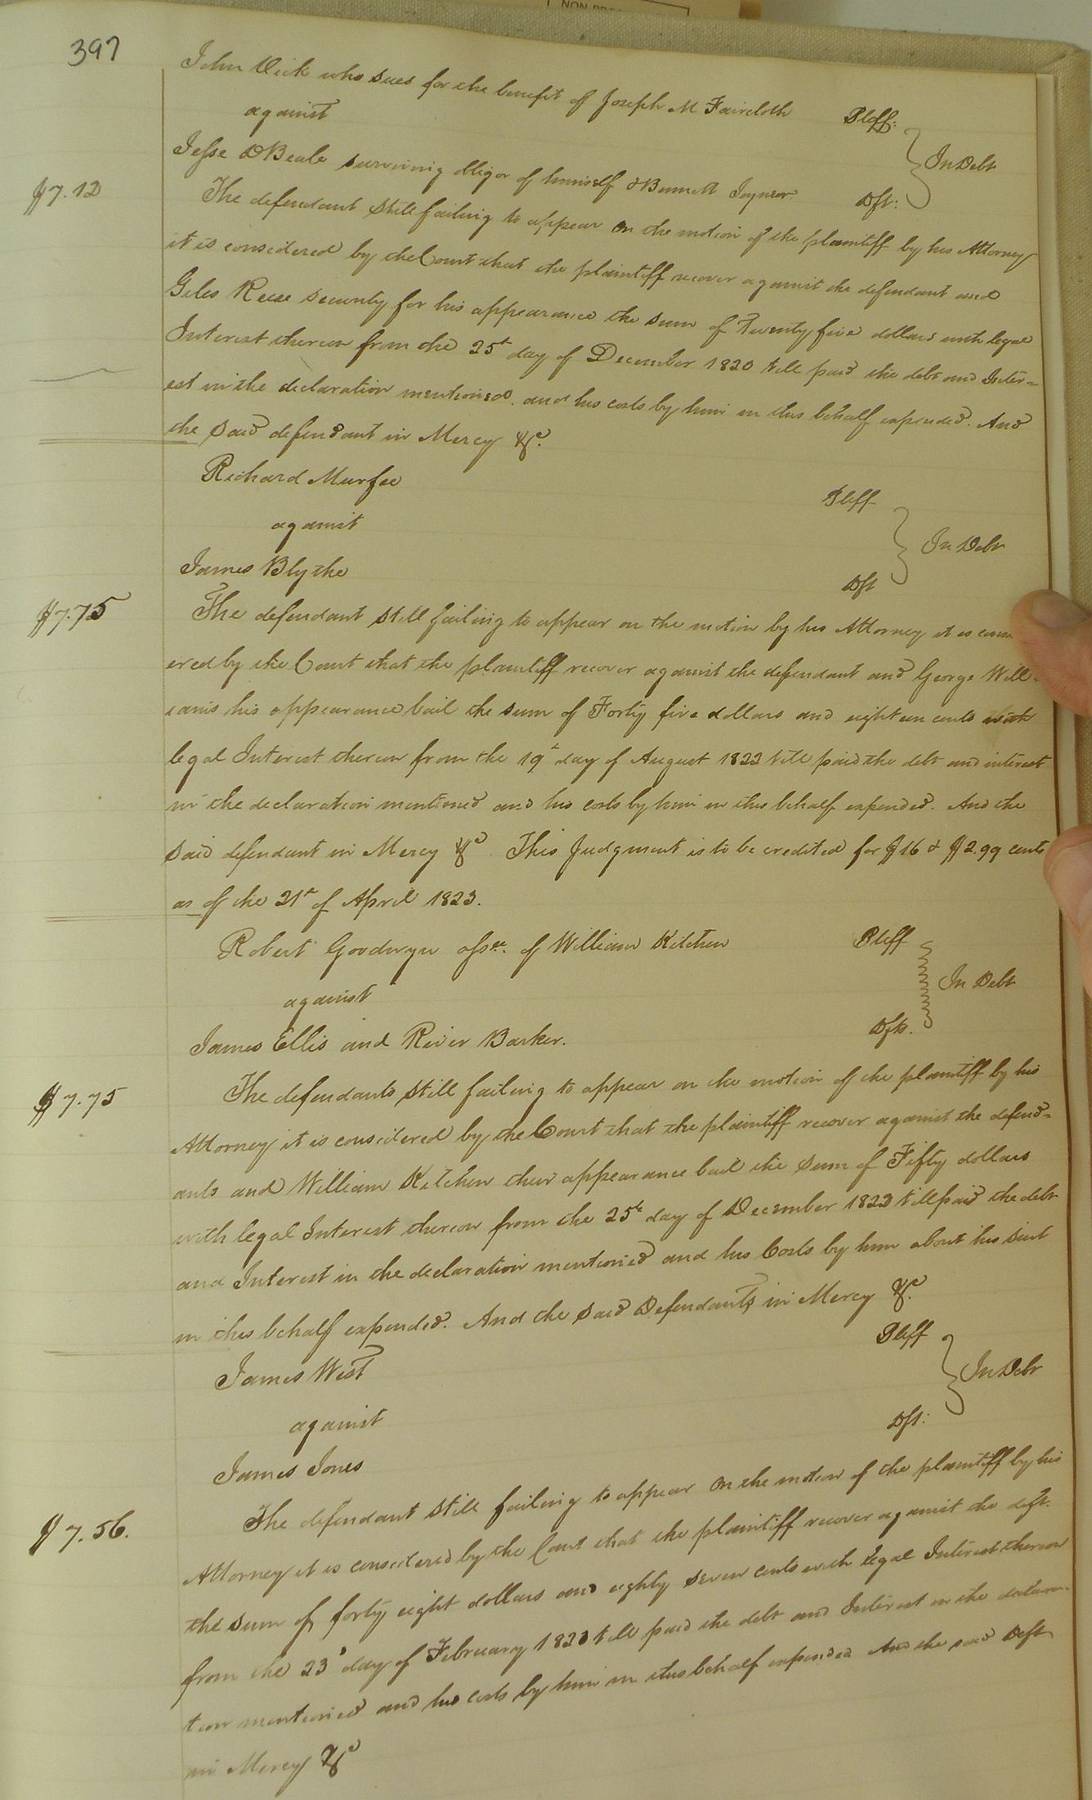 397
John Dick who sues for the benefit of Joseph M Faircloth Pltff:
against
In Debt
Jesse D Beale surviving obligor of himself & Bennett Joyner Dft:
$7.12
The defendant still failing to appear on the motion of the plaintiff by his Attorney
it is considered by the Court that the plaintiff recover against the defendant and
Giles Reese security for his appearance the sum of Twenty five dollars with legal
Interest thereon from the 25t day of December 1820 till paid the debt and Inter=
est in the declaration mentioned. and his costs by him in this behalf expended. And
the said defendant in Mercy &c.
Richard Murfee Pltff
against
In Debt
James Blythe Dft
$7.75
The defendant still failing to appear on the motion by his Attorney it is
ered by the Court that the plaintiff recover against the defendant and George Will
iams his appearance bail the sum of Forty five dollars and eighteen cents with
legal Interest thereon from the 19t day of August 1822 till paid the debt and interest
in the declaration mentioned and his costs by him in this behalf expended. And the
said defendant in Mercy &c This Judgment is to be credited for $16 & $2.99 cents
as of the 21st of April 1823.
Robert Goodwyn assee. of William Kitchen Pltff
against
In Debt
James Ellis and River Barker. Dfts.
$7.75
The defendants still failing to appear on the motion of the plaintiff by his
Attorney it is considered by the Court that the plaintiff recover against the defend=
ants and William Kitchen their appearance bail the sum of Fifty dollars
with legal Interest thereon from the 25t day of December 1823 till paid the debt
and Interest in the declaration mentioned and his Costs by him about his suit
in this behalf expended. And the said Defendants in Mercy &c.
James West Pltff
against
In Debt
James Jones Dft:
$7.56.
The defendant still failing to appear on the motion of the plaintiff by his
Attorney it is considered by the Court that the plaintiff recover against the deft.
the sum of forty eight dollars and eighty seven cents with legal Interest thereon
from the 23d day of February 1823 till paid the debt and Interest in the declara-
tion mentioned and his costs by him in this behalf expended And the said Deft
in Mercy &c